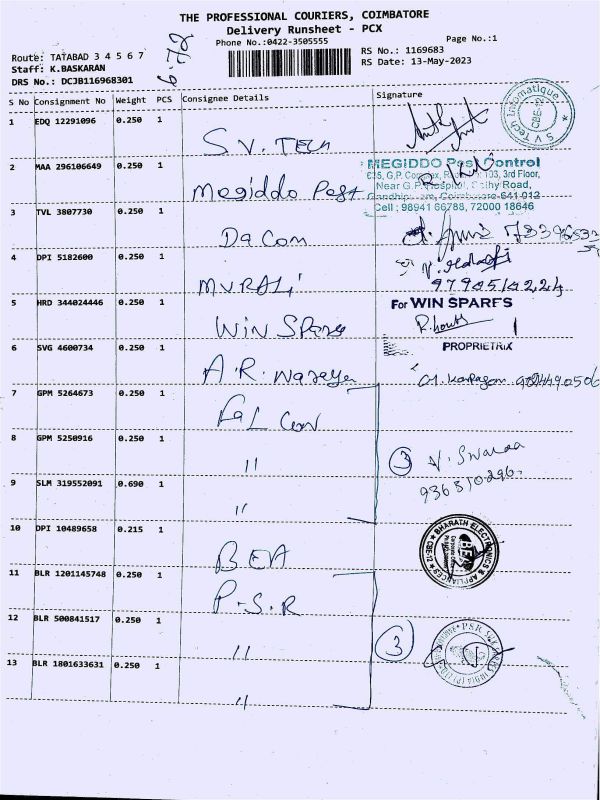 THE PROFESSIONAL COURIERS, COIMBATORE
Delivery Runsheet - PCX
Phone No.:0422-3505555
Page No.:1
Route: TATABAD 3 4 5 6 7
Staff: K.BASKARAN
DRS No.: DCJB116968301
RS No.: 1169683
RS Date: 13-May-2023
S No Consignment No Weight PCS Consignee Details Signature
1 EDQ 12291096 0.250 1 S.V. TECH
S V Tech Informatique CBE-12
2 MAA 296106649 0.250 1 Megiddo Pest
MEGIDDO Pest Control
3rd Floor,
Near G.P. Hospital, Road,
Cell : 98941 66788, 72000 18646
3 TVL 3807730 0.250 1 Da Com
4 DPI 5182600 0.250 1 MURALI
5 HRD 344024446 0.250 1 Win Spares
For WIN SPARES
PROPRIETRIX
6 SVG 4600734 0.250 1 A.R.
7 GPM 5264673 0.250 1 Fal Con
8 GPM 5250916 0.250 1 "
3
9 SLM 319552091 0.690 1 "
10 DPI 10489658 0.215 1 BEA
BHARATH ELECTRONICS & APPLIANCES CBE-12
BEA
11 BLR 1201145748 0.250 1 P.S.R
12 BLR 500841517 0.250 1 "
3
13 BLR 1801633631 0.250 1 "